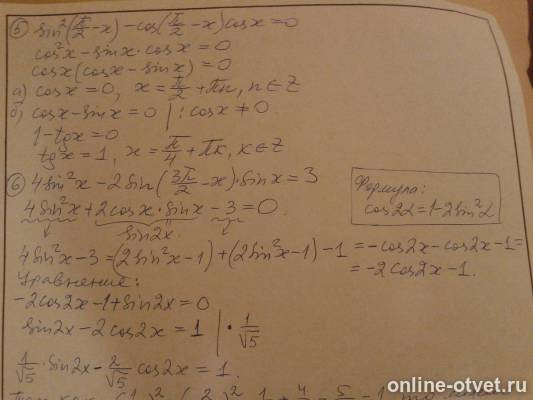 ⑤ sin²(π/2-x)-cos(π/2-x)cosx=0
cos²x-sinx·cosx=0
cosx(cosx-sinx)=0
а) cosx=0, x=π/2+πn, n∈Z
б) cosx-sinx=0 |:cosx≠0
1-tgx=0
tgx=1, x=π/4+πk, k∈Z
⑥ 4sin²x-2sin(3π/2-x)·sinx=3
4sin²x+2cosx·sinx-3=0.
sin2x.
Формула:
cos2α=1-2sin²α
4sin²x-3=(2sin²x-1)+(2sin²x-1)-1=-cos2x-cos2x-1=
=-2cos2x-1.
Уравнение:
-2cos2x-1+sin2x=0
sin2x-2cos2x=1 |·1/√5
1/√5·sin2x-2/√5cos2x=1.
online-otvet.ru